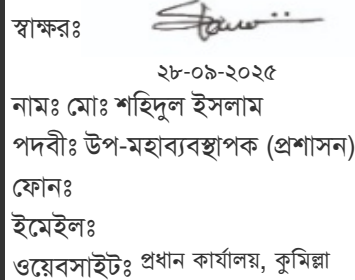 স্বাক্ষরঃ
২৮-০৯-২০২৫
নামঃ মোঃ শহিদুল ইসলাম
পদবীঃ উপ-মহাব্যবস্থাপক (প্রশাসন)
ফোনঃ
ইমেইলঃ
ওয়েবসাইটঃ প্রধান কার্যালয়, কুমিল্লা